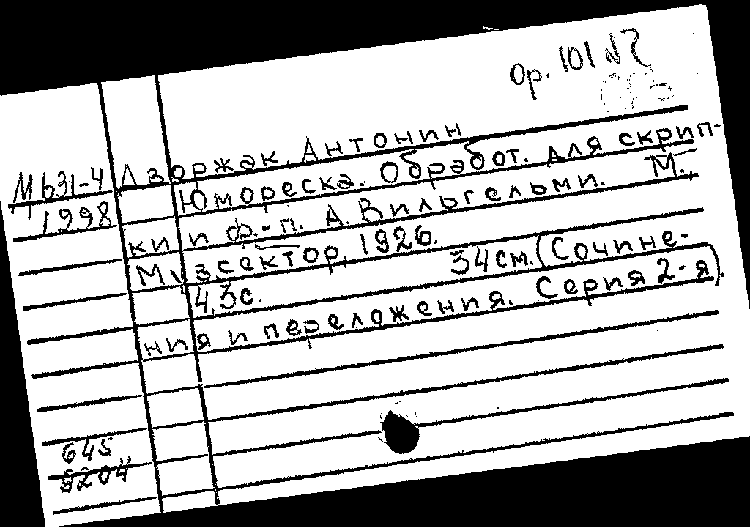 ор. 101 №7
М631-4 Дворжак, Антонин
1998 Юмореска. Обработ. для скрип-
ки и ф.-п. А. Вильгельми. М.,
Музсектор, 1926.
4,3 с. 34 см. (Сочине-
ния и переложения. Серия 2-я).
645
5204